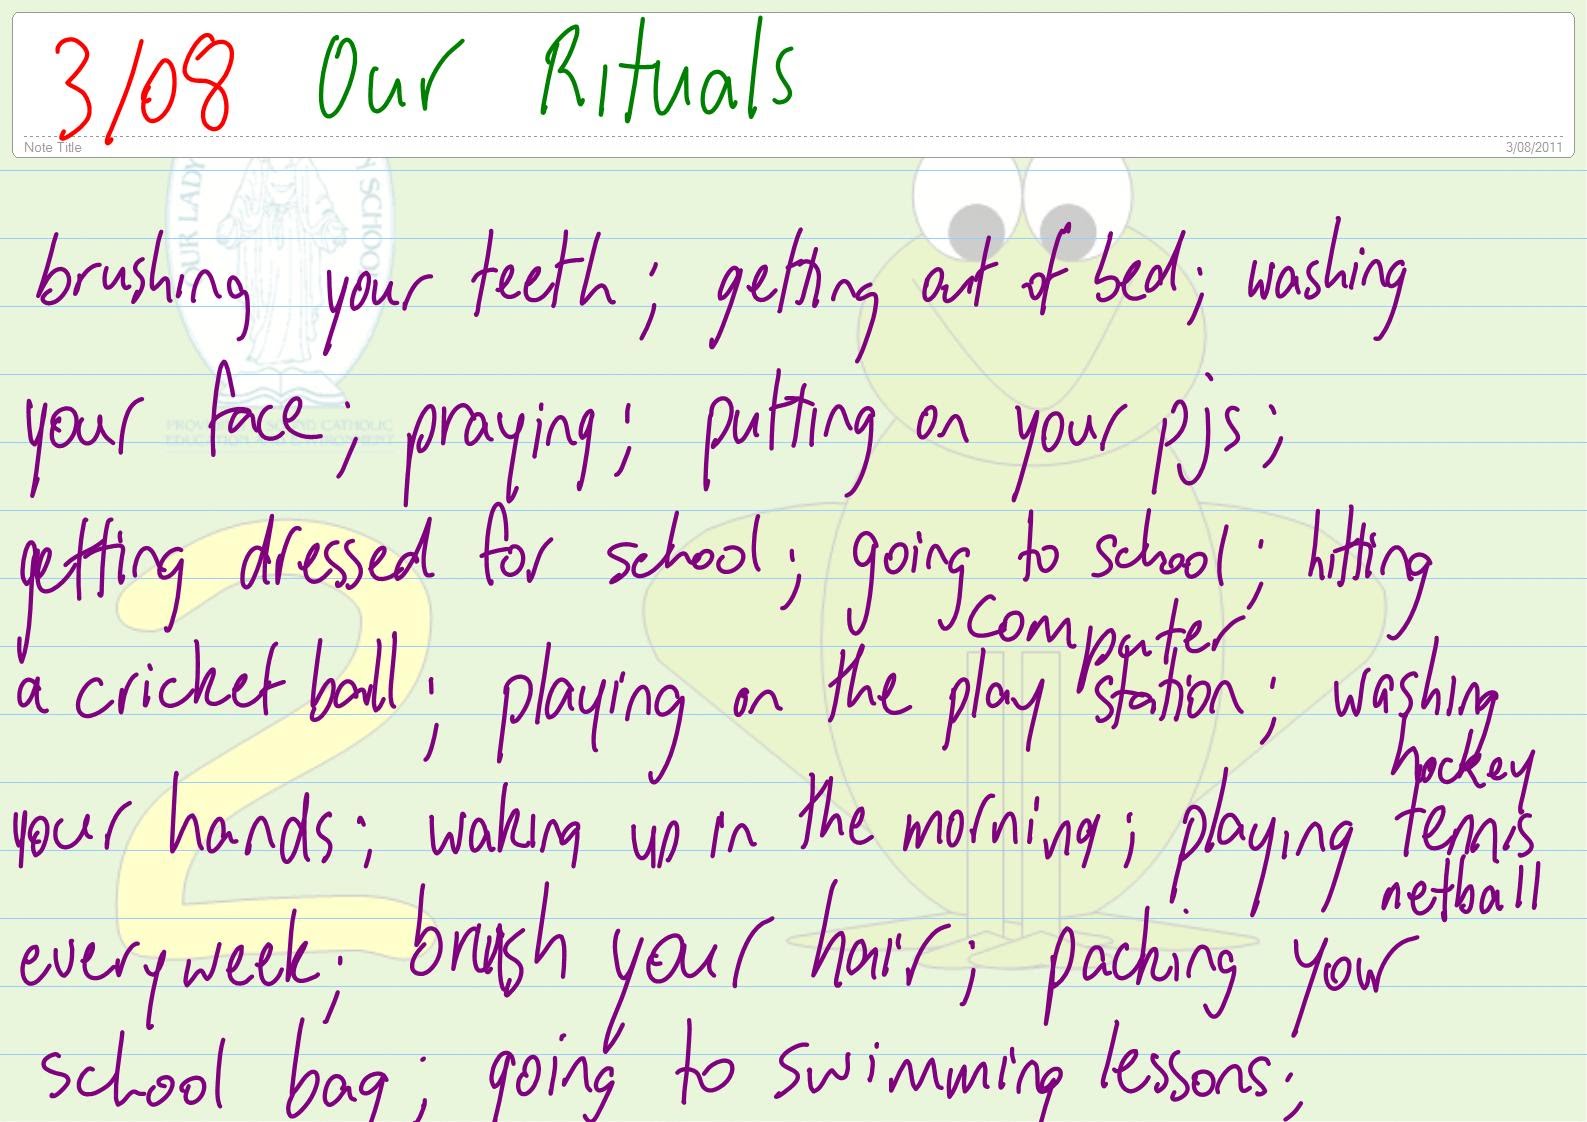 3/08 Our Rituals
Note Title 3/08/2011
OUR LADY
Y SCHOOL
brushing your teeth; getting out of bed; washing
your face; praying; putting on your pjs;
PROV
CATHOLIC
EDUCATION
getting dressed for school; going to school; hitting
computer
a cricket ball; playing on the play station; washing
hockey
your hands; waking up in the morning; playing tennis
netball
every week; brush your hair; packing your
school bag; going to swimming lessons;
2